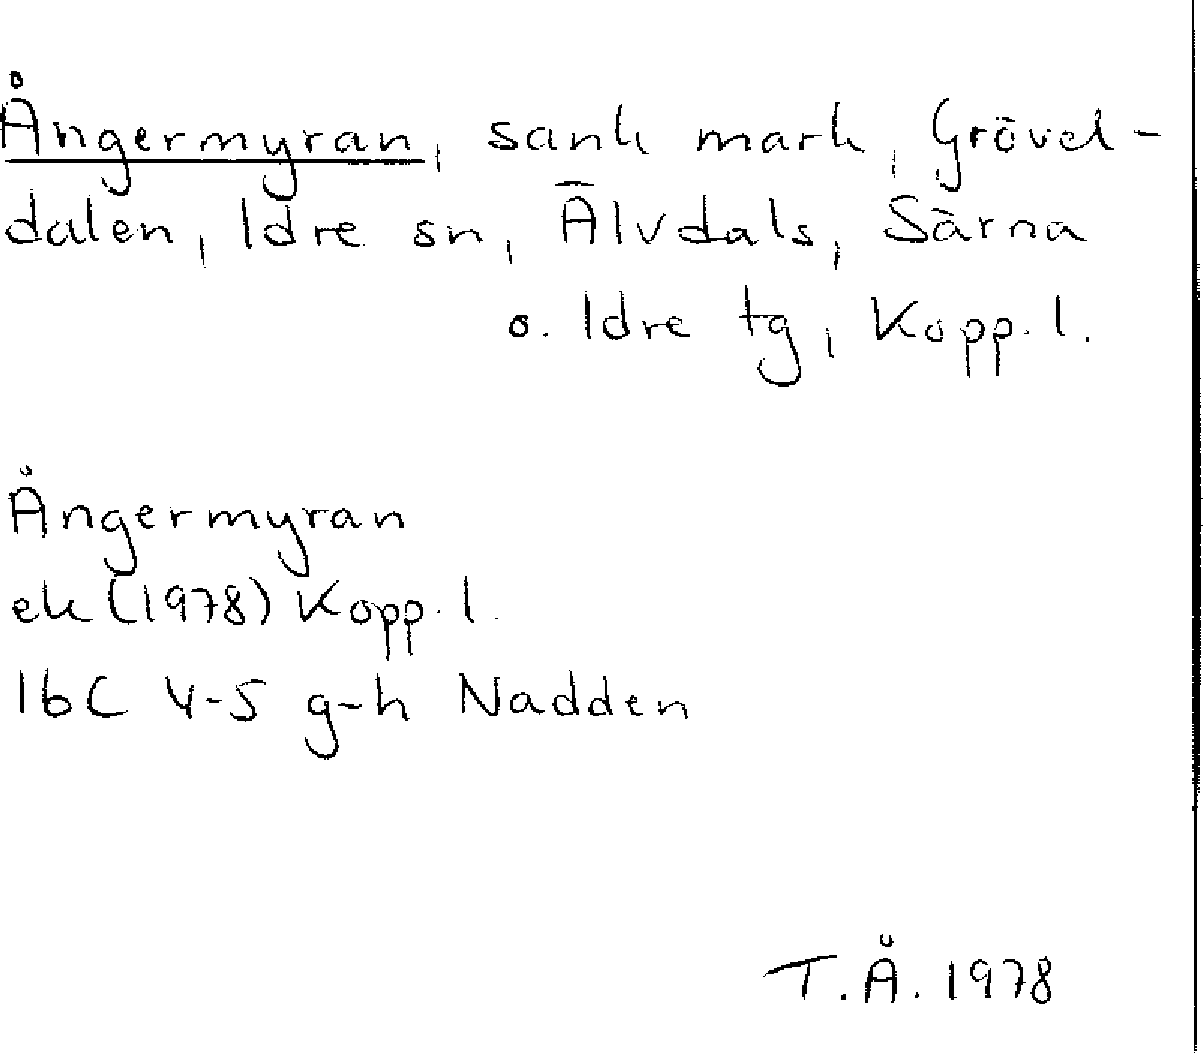 Ångermyran, sank mark, Grövel-
dalen, Idre sn, Älvdals, Särna
o. Idre tg, Kopp. l.
Ångermyran
ek (1978) Kopp. l.
16C 4-5 g-h Nadden
T.Å. 1978